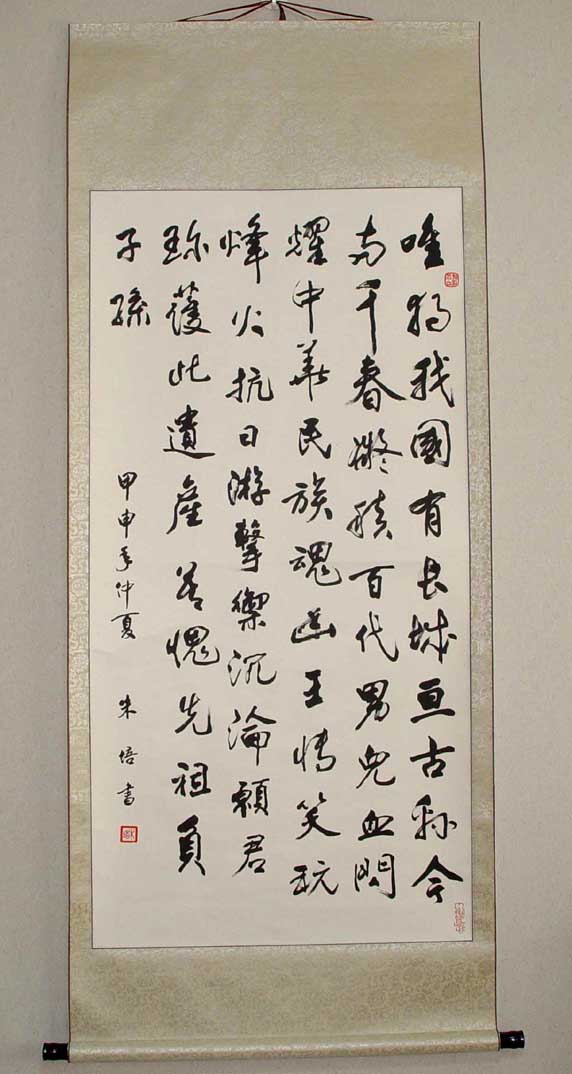 唯独我國有长城亘古弥今
千春凝積百代男兒血閃
耀中華民族魂幽王博笑玩
烽火抗日游擊禦沉淪願君
珍護此遺產愧先祖負
子孫
甲申年仲夏 朱書